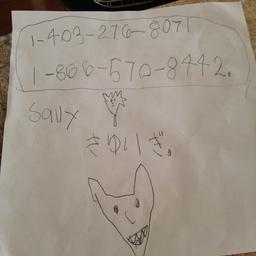 1-403-276-8071
1-866-570-8442.
Sally
きゆいぎ。